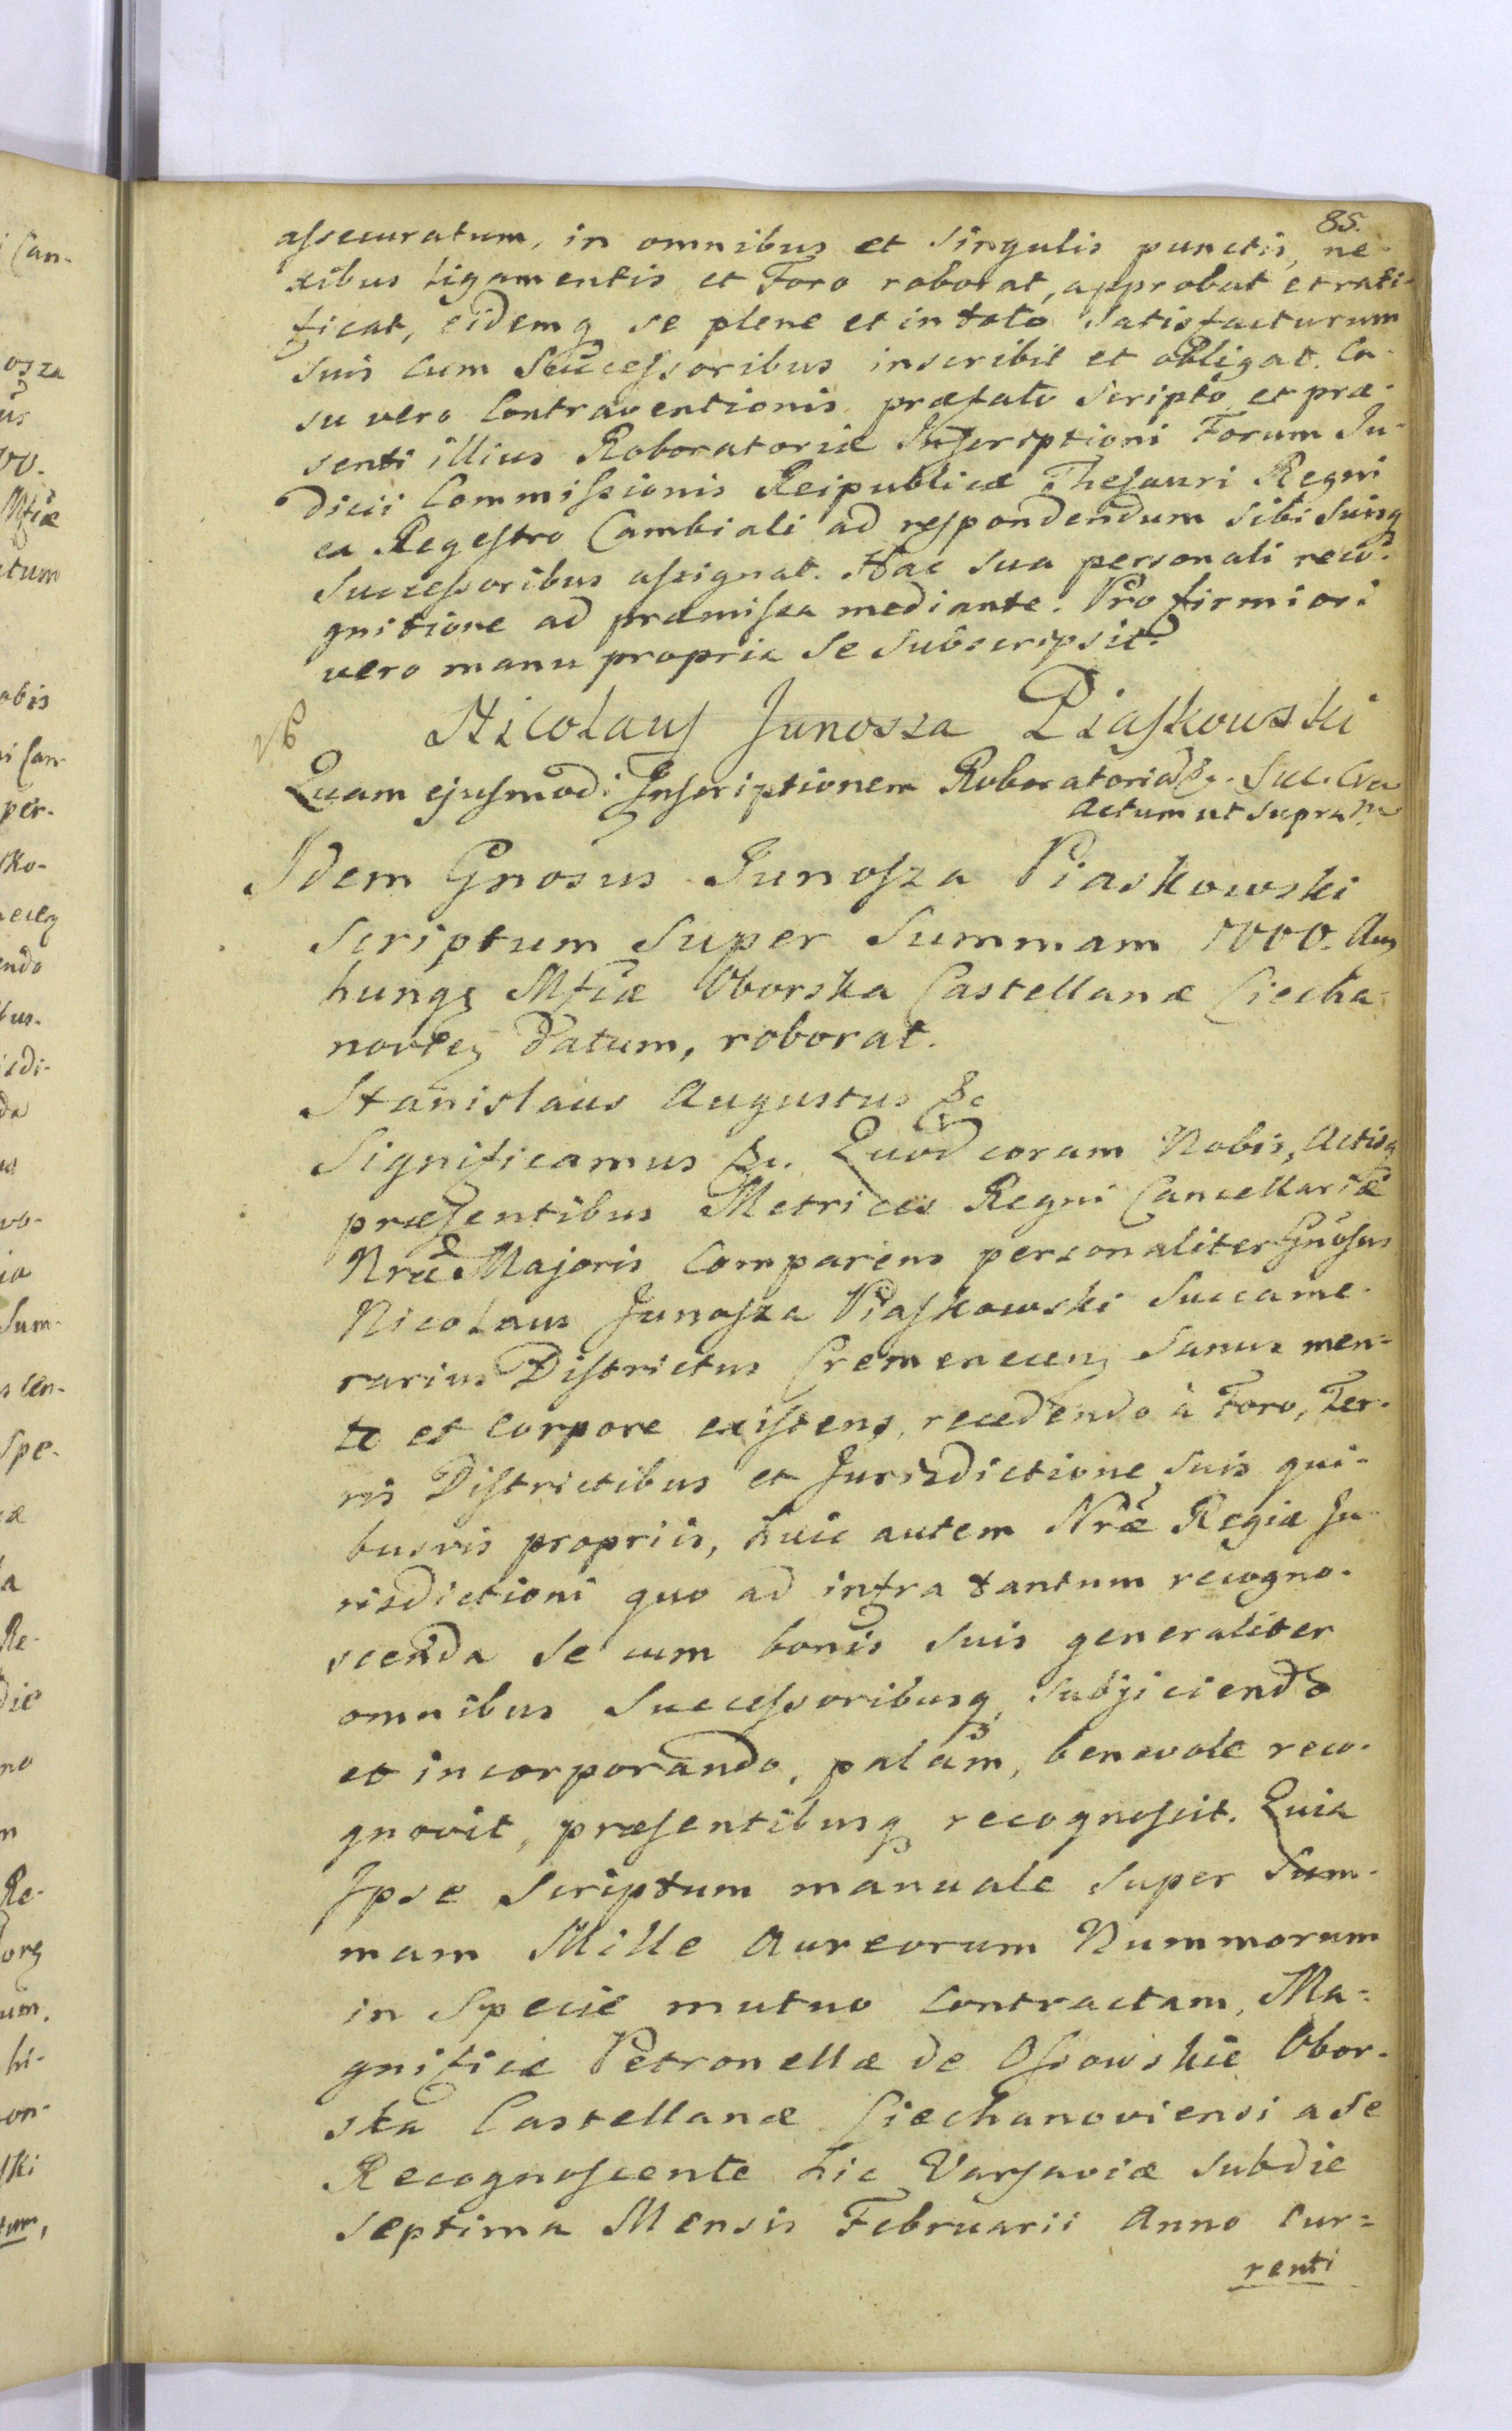 85.
assecuratum, in omnibus et singulis punctis, ne-
xibus ligamentis et Foro roborat, approbat et rati-
ficat, eidemq se plene et in toto satisfacturum
suis cum Successoribus inscribit et obligat. Ca-
su vero Contraventionis præfato Scripto et præ-
senti illius Roboratoriæ Inscriptioni Forum Ju-
dicii Commissionis Reipublicæ Thesauri Regni
ex Regestro Cambiali ad respondendum sibi suisq
Successoribus assignat. Hac sua personali reco-
gnitione ad præmissa mediante. Pro firmiori
vero manu propria se subscripsit.
Nicolaus Junosza Piaskowski
Quam ejusmodi Inscriptionem Roboratoriā &.
Actum ut supra
Idem Gnosus Junosza Piaskowski
scriptum super Summam 1000. Aur
hung Mficæ Oborska Castellanæ Ciecha-
novien datum, roborat.
Stanislaus Augustus &c
Significamus &c. Quod coram Nobis, Actisq
præsentibus Metrices Regni Cancellariæ
Nræ Majoris comparens personaliter Gnosus
Nicolaus Junosza Piaskowski Succame-
rarius Districtus Cremenecen sanus men-
te et corpore existens, recedendo à Foro, Ter-
ris Districtibus et Jurisdictione suis qui-
busvis propriis, huic autem Nræ Regiæ Ju-
risdictioni quo ad infra tantum recogno-
scenda se cum bonis suis generaliter
omnibus Successoribusq subjiciendo
et incorporando, palàm, benevole reco-
gnovit, præsentibusq recognoscit. Quia
Ipse Scriptum manuale super Sum-
mam Mille Aureorum Nummorum
in Specie mutuo contractam, Ma-
gnificæ Petronellæ de Ossowskie Obor-
ska Castellanæ Ciechanoviensi a se
Recognoscente hic Varsaviæ sub die
septima Mensis Februarii Anno Cur-
renti